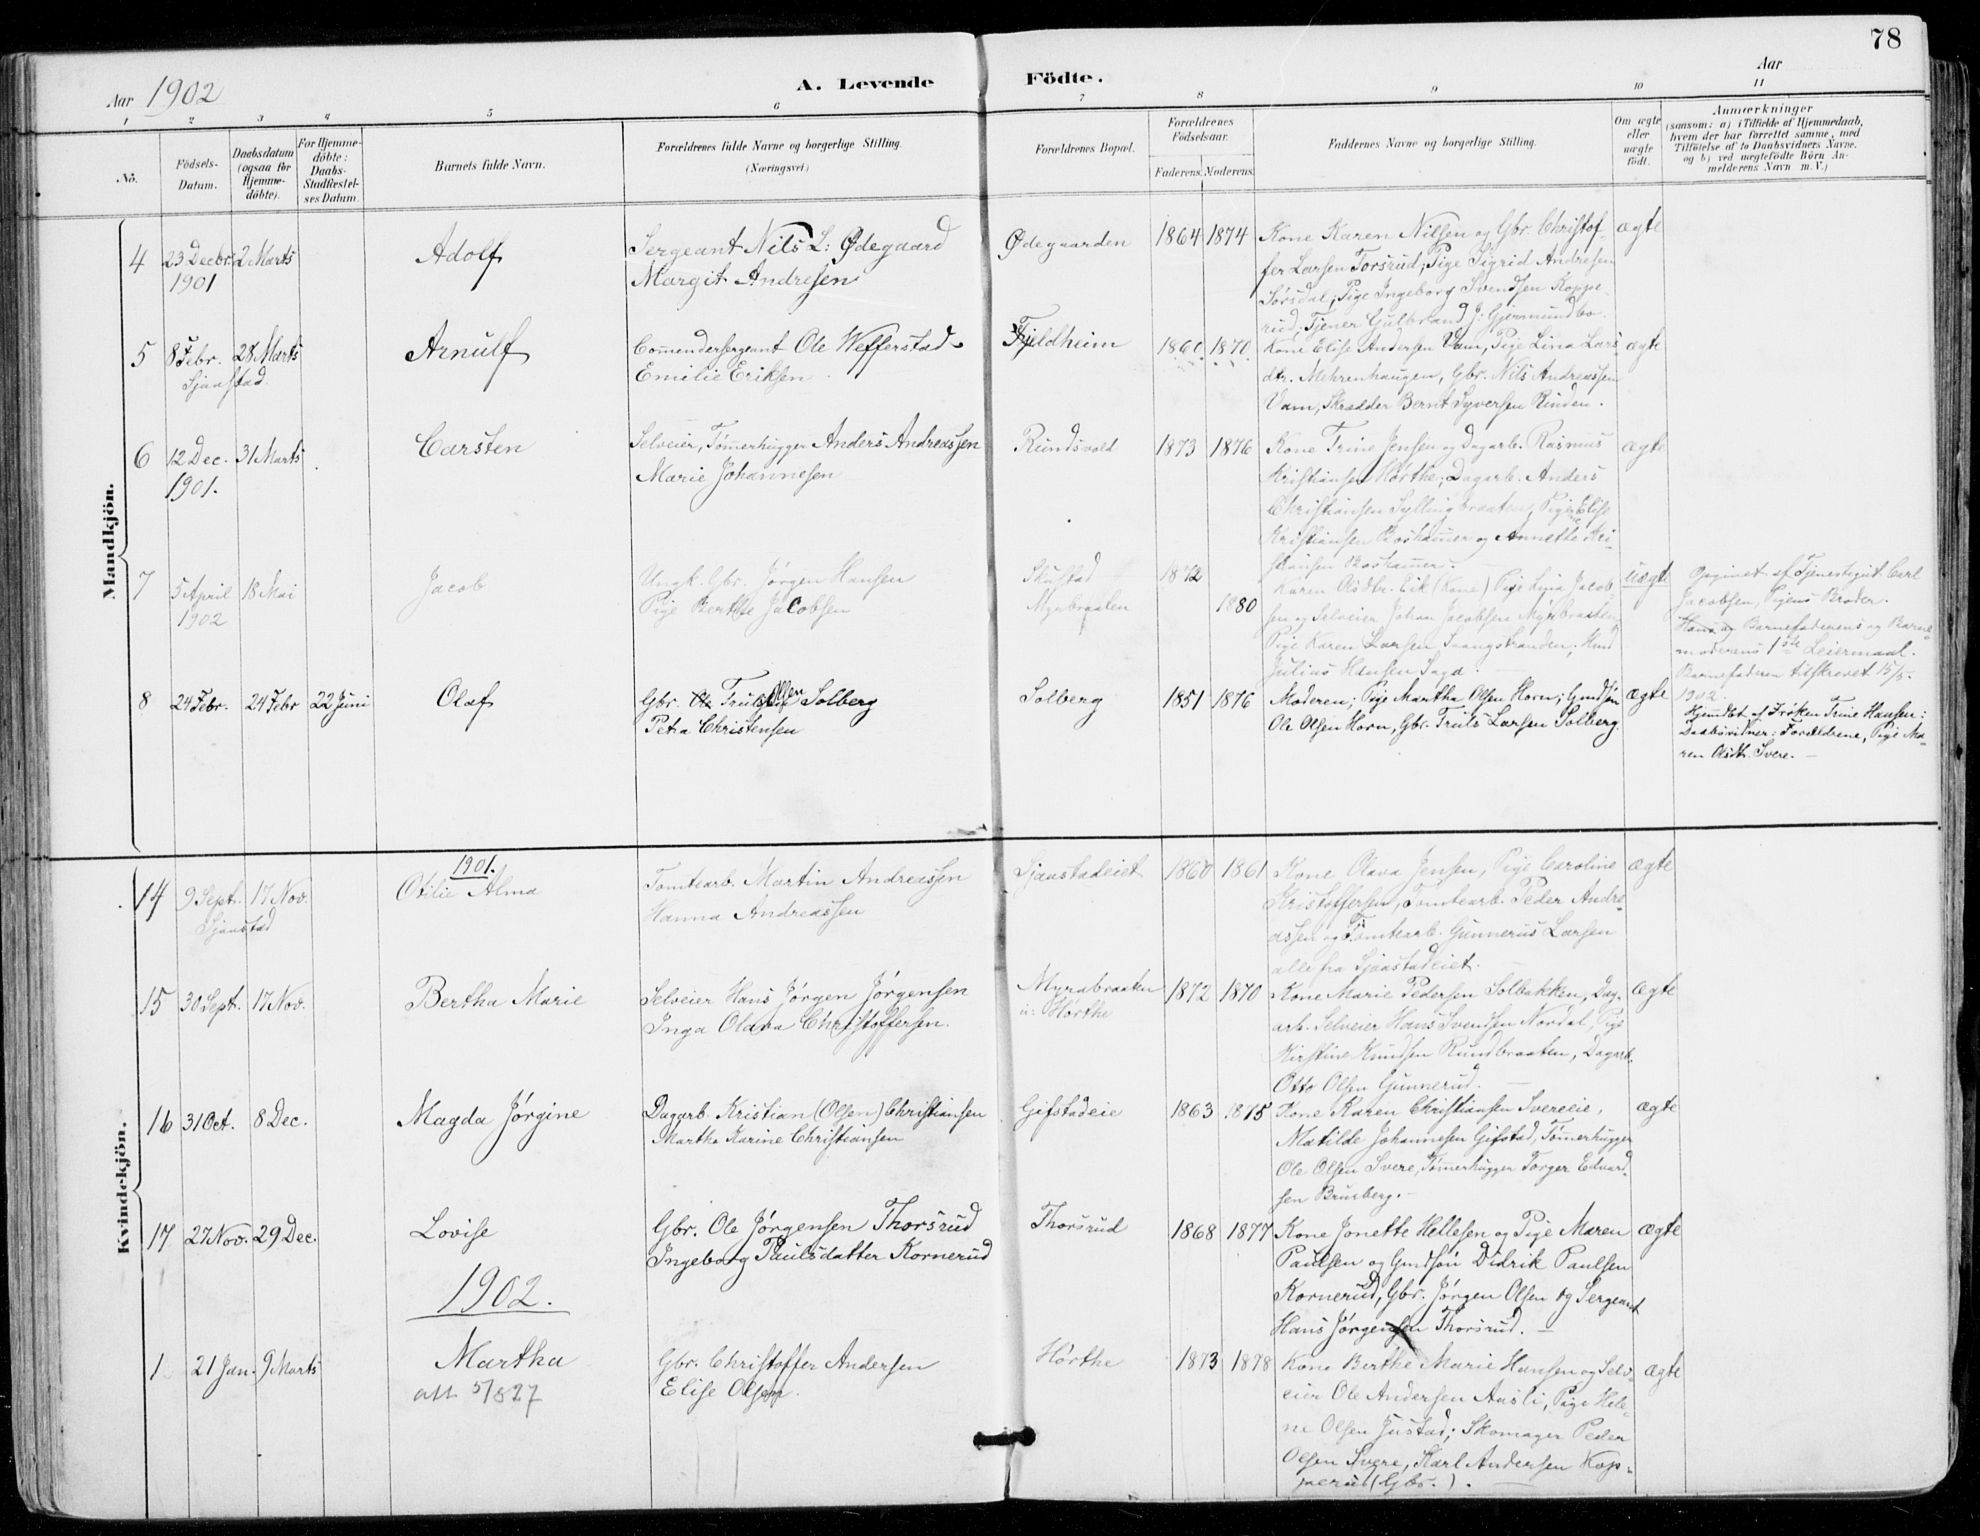 78
Aar 1902
A. Levende Födte.
Aar
1 2 3 4 5 6 7 8 9 10 11
No.
Födsels-Datum.
Daabsdatum (ogsaa for Hjemmedöbte).
For Hjemmedöbte: Daabs-Stadfæstelses Datum.
Barnets fulde Navn.
Forældrenes fulde Navne og borgerlige Stilling. (Næringsvei)
Forældrenes Bopæl.
Forældrenes Födselsaar.
Faderens. Moderens.
Faddernes Navne og borgerlige Stilling.
Om ægte eller uægte födt.
Anmærkninger
(saasom: a) i Tilfælde af Hjemmedaab,
hvem der har forrettet samme, med
Tilföielse af to Daabsvidners Navne,
og b) ved uegtefödte Börn An-
melderens Navn m. V.)
Mandkjön.
4 23 Decbr. 1901 2 Marts
Adolf
Sergeant Nils L: Ødegaard
Margit Andresen
Ødegaarden 1864 1874
Kone Karen Nilsen og Gbr. Christof-
fer Larsen Torsrud; Pige Sigrid Andresen
Sørsdal; Pige Ingeborg Svendsen Koppe-
rud; Tjener Gulbrand J: Gjermundbo.
ægte
5 8 Febr. Sjaastad. 28 Marts
Arnulf
Commendersergeant Ole Wefferstad
Emilie Eriksen
Fjeldheim 1860 1870
Kone Elise Andersen Vam, Pige Lina Lars-
dtr. Mehrenhaugen, Gbr. Nils Andreassen
Vam, Skrædder Bernt Syversen Rinden.
ægte
6 12 Dec. 1901. 31 Marts
Carsten
Selveier, Tømerhugger Anders Andreassen
Marie Johannesen
Rundsvold 1873 1876
Kone Trine Jensen og Dagarb. Rasmus
Kristiansen Hørthe; Dagarb. Anders
Christiansen Syllingbraaten, Pige Elise
Kristiansen Boshamer og Annette Kri-
stiansen Boshamer.
ægte
7 5 April 1902 18 Mai
Jacob
Ungk. Gbr. Jørgen Hansen
Pige Berthe Jacobsen
Skustad
Myrbraaten
1872 1880
Karen Olsdtr. Eik (Kone) Pige Lina Jacob-
sen og Selveier Johan Jacobsen Myrbraaten,
Pige Karen Larsen Svangstranden,
Julius Hansen Saga.
uægte
Opgivet af Tjenestegut Carl
Jacobsen, Pigens Broder.
Hans og Barnefaderens og Barne-
moderens 1ste Leiermaal.
Barnefaderen tilskrevet 15/5.
1902.
8 24 Febr. 24 Febr 22 Juni
Olaf
Gbr. Truls Olsen Solberg
Petra Christensen
Solberg 1851 1876
Moderen; Pige Martha Olsen Horn; Gmdsøn
Ole Olsen Horn, Gbr. Truls Larsen Solberg.
ægte
Hjemdbt. af Frøken Trine Hansen:
Daabsvidner: Forældrene, Pige Ma-
ren Olsdtr. Svere.
Kvindekjön.
1901.
14 9 Sept. Sjaastad 17 Nov.
Otilie Alma
Tomtearb. Martin Andreassen
Hanna Andreassen
Sjaastadeiet 1860 1861
Kone Olava Jensen, Pige Caroline
Kristoffersen, Tomtearb. Peder Andre-
assen og Tomtearb. Gunnerus Larsen
alle fra Sjaastadeiet.
ægte
15 30 Sept. 17 Nov.
Bertha Marie
Selveier Hans Jørgen Jørgensen
Inga Olava Christoffersen.
Myrabraaten
u: Hørthe
1872 1870
Kone Marie Pedersen Solbakken, Dag-
arb. Selveier Hans Svendsen Nordal, Pige
Kirstine Knudsen Rundbraaten, Dagarb.
Otto Olsen Gunnerud.
ægte
16 31 Oct. 8 Dec.
Magda Jørgine
Dagarb. Kristian (Olsen) Christiansen
Marthe Karine Christiansen
Gifstadeie 1863 1875
Kone Karen Christiansen Svereeie,
Matilde Johannesen Gifstad, Tømerhugger
Ole Olsen Svere, Tømerhugger Torger Edvard-
sen Brusberg.
ægte
17 27 Nov. 29 Dec.
Lovise
Gbr. Ole Jørgensen Thorsrud
Ingeborg Paulsdatter Kornerud
Thorsrud 1868 1877
Kone Jonette Hellesen og Pige Maren
Paulsen og Gmdsøn Didrik Paulsen
Kornerud, Gbr. Jørgen Olsen og Sergeant
Hans Jørgensen Thorsrud.
ægte
1902.
1 21 Jan. 9 Marts
Martha
att 5/8 27
Gbr. Christoffer Andersen
Elise Olsen.
Hørthe 1873 1878
Kone Berthe Marie Hansen og Selv-
eier Ole Andersen Aasli, Pige Hele-
ne Olsen Justad; Skomager Peder
Olsen Svere, Karl Andersen Kop-
perud (Gbr.).
ægte